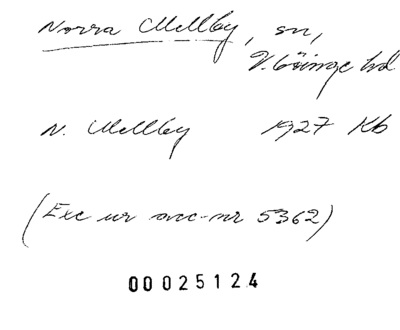 Norra Mellby, sn,
V. Göinge hd
N. Mellby 1927 Kb
(Exc ur acc-nr 5362)
00025124